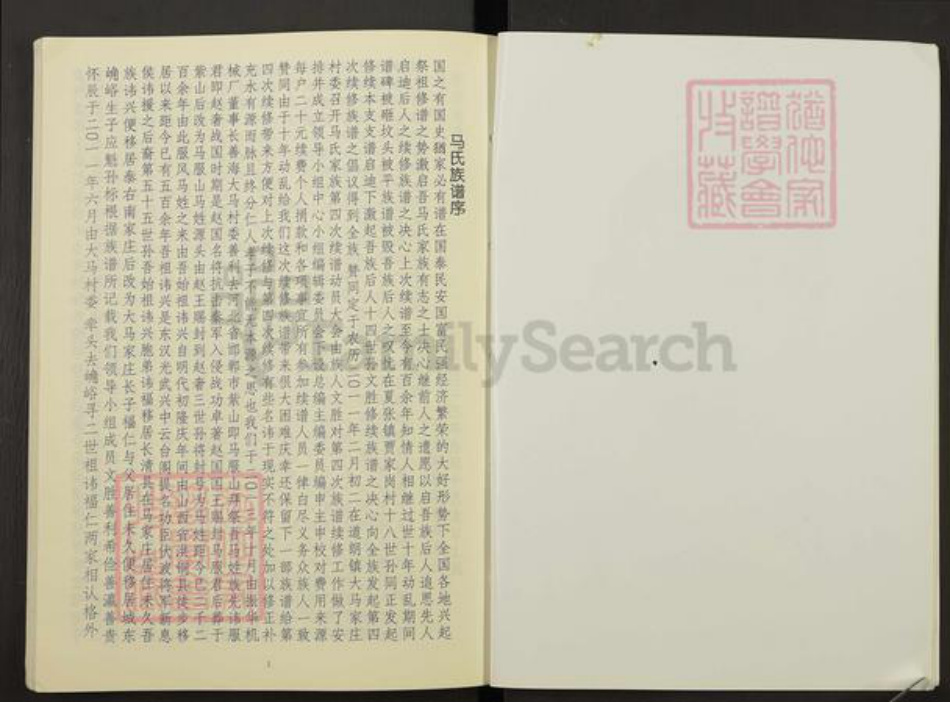 马氏族谱序
国之有国史犹家必有谱在国泰民安国富民强经济繁荣的大好形势下全国各地兴起
祭祖修谱之势激启吾马氏家族有志之士决心继前人之遗愿以启吾族后人追思先人
启迪后人之续修族谱之决心上次续谱至今有百余年知情人相继过世十年动乱期间
谱碑被砸坟头被平族谱被毁吾族后人之叹忧在夏张镇贾家岗村十八世孙同正发起
修续本支支谱启迪下激起吾族后人十四世孙文胜修续族谱之决心向全族发起第四
次续修族谱之倡议得到全族 赞同定于农历二〇一一年二月初二在道朗镇大马家庄
村委召开马氏家族第四次续谱动员大会由族人文胜对第四次族谱续修工作做了安
排并成立领导小组中心小组编辑委员会下设总编主编委员编申主申校对费用来源
每户二十元续费个人捐款和各项事宜所有参加续谱人员一律白尽义务众族人一致
赞同由于十年动乱给我们这次续修族谱带来很大困难庆幸还保留下一部族谱给第
四次续修带来方便对上次续修与第四次续修有些名讳于现实不符之处加以修正补
充永有源而脉且终分仁人孝子不能无本源之思也我们于二〇一三年十月由振华机
械厂董事长善海大马村委善利去河北省邯郸市紫山即马服山拜祭吾马姓族先讳服
君即赵奢战国时期是赵国名将抗击秦军入侵战功卓著赵国国王赐封马服君后葬于
紫山后改为马服山马姓源头由赵王赐封到赵奢三世孙将封号为马姓距今已二千二
百余年由此服风马姓之来由吾始祖讳兴自明代初隆庆年间由山西省洪铜县徒步移
居以来距今已有五百余年吾祖讳兴是东汉光武兴中云台阁提名功臣伏波将军新息
侯讳援之后裔第五十五世孙吾始祖讳兴胞弟讳福移居长清县在马家庄居住未久吾
族讳兴便移居泰右南家庄后改为大马家庄长子福仁与父居住未久便移居城东
峗峪生子应魁孙标根据族谱所记载我们领导小组成员文胜善利希俭善瀛善贵
怀辰于二〇一一年六月由大马村委 牵头去峗峪寻二世祖讳福仁两家相认格外
1
FamilySearch
猶他家
譜學會
收藏